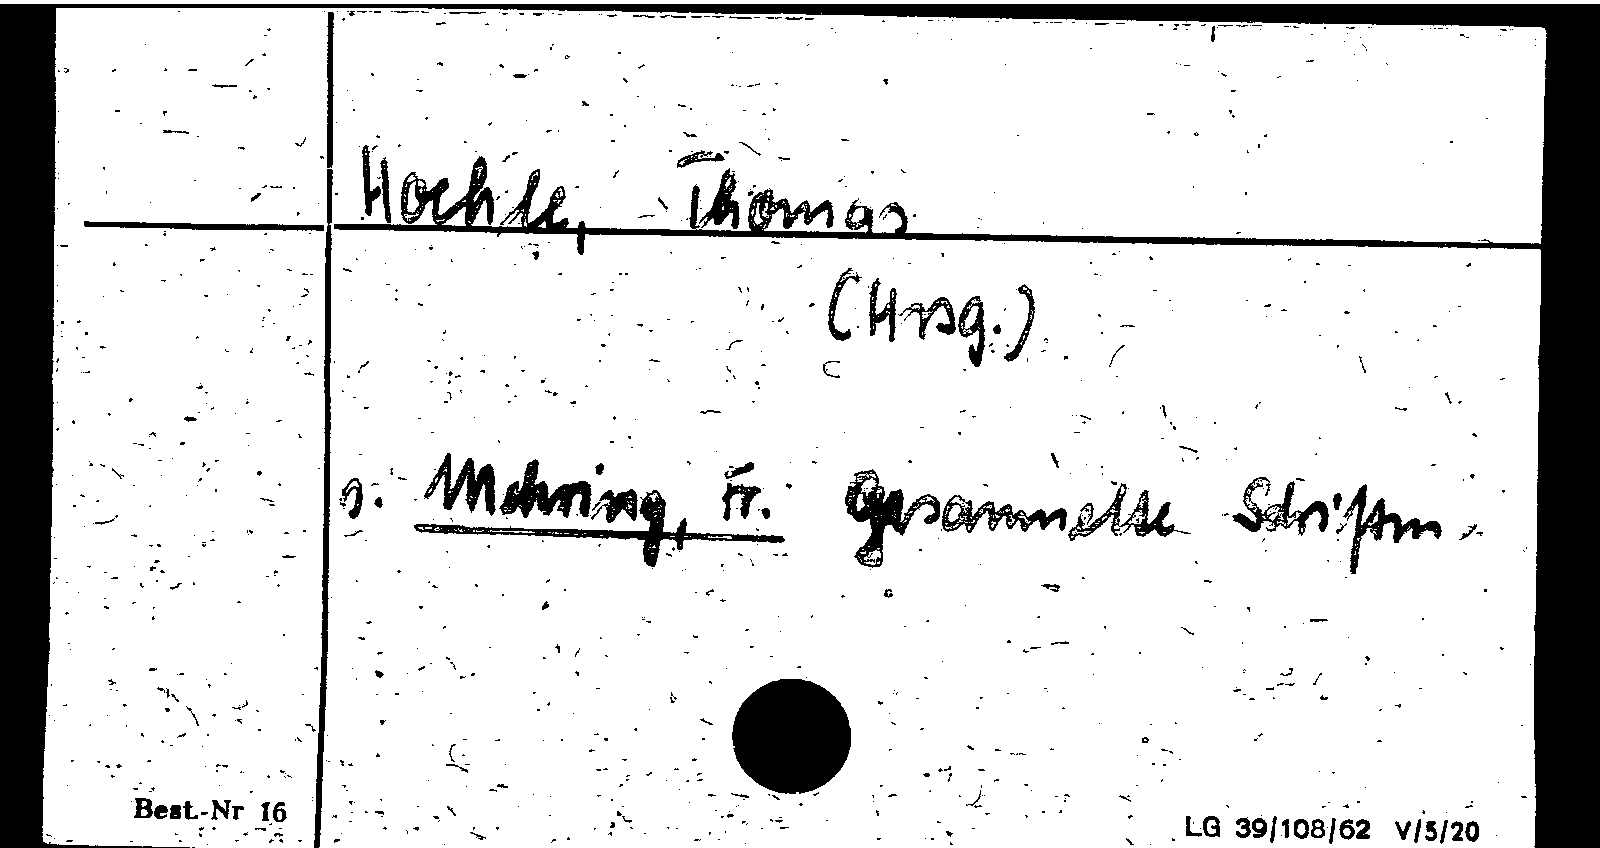 Hoehle, Thomas
(Hrsg.)
s. Mehring, Fr. Gesammelte Schriften.
Best.-Nr 16
LG 39/108/62 V/5/20